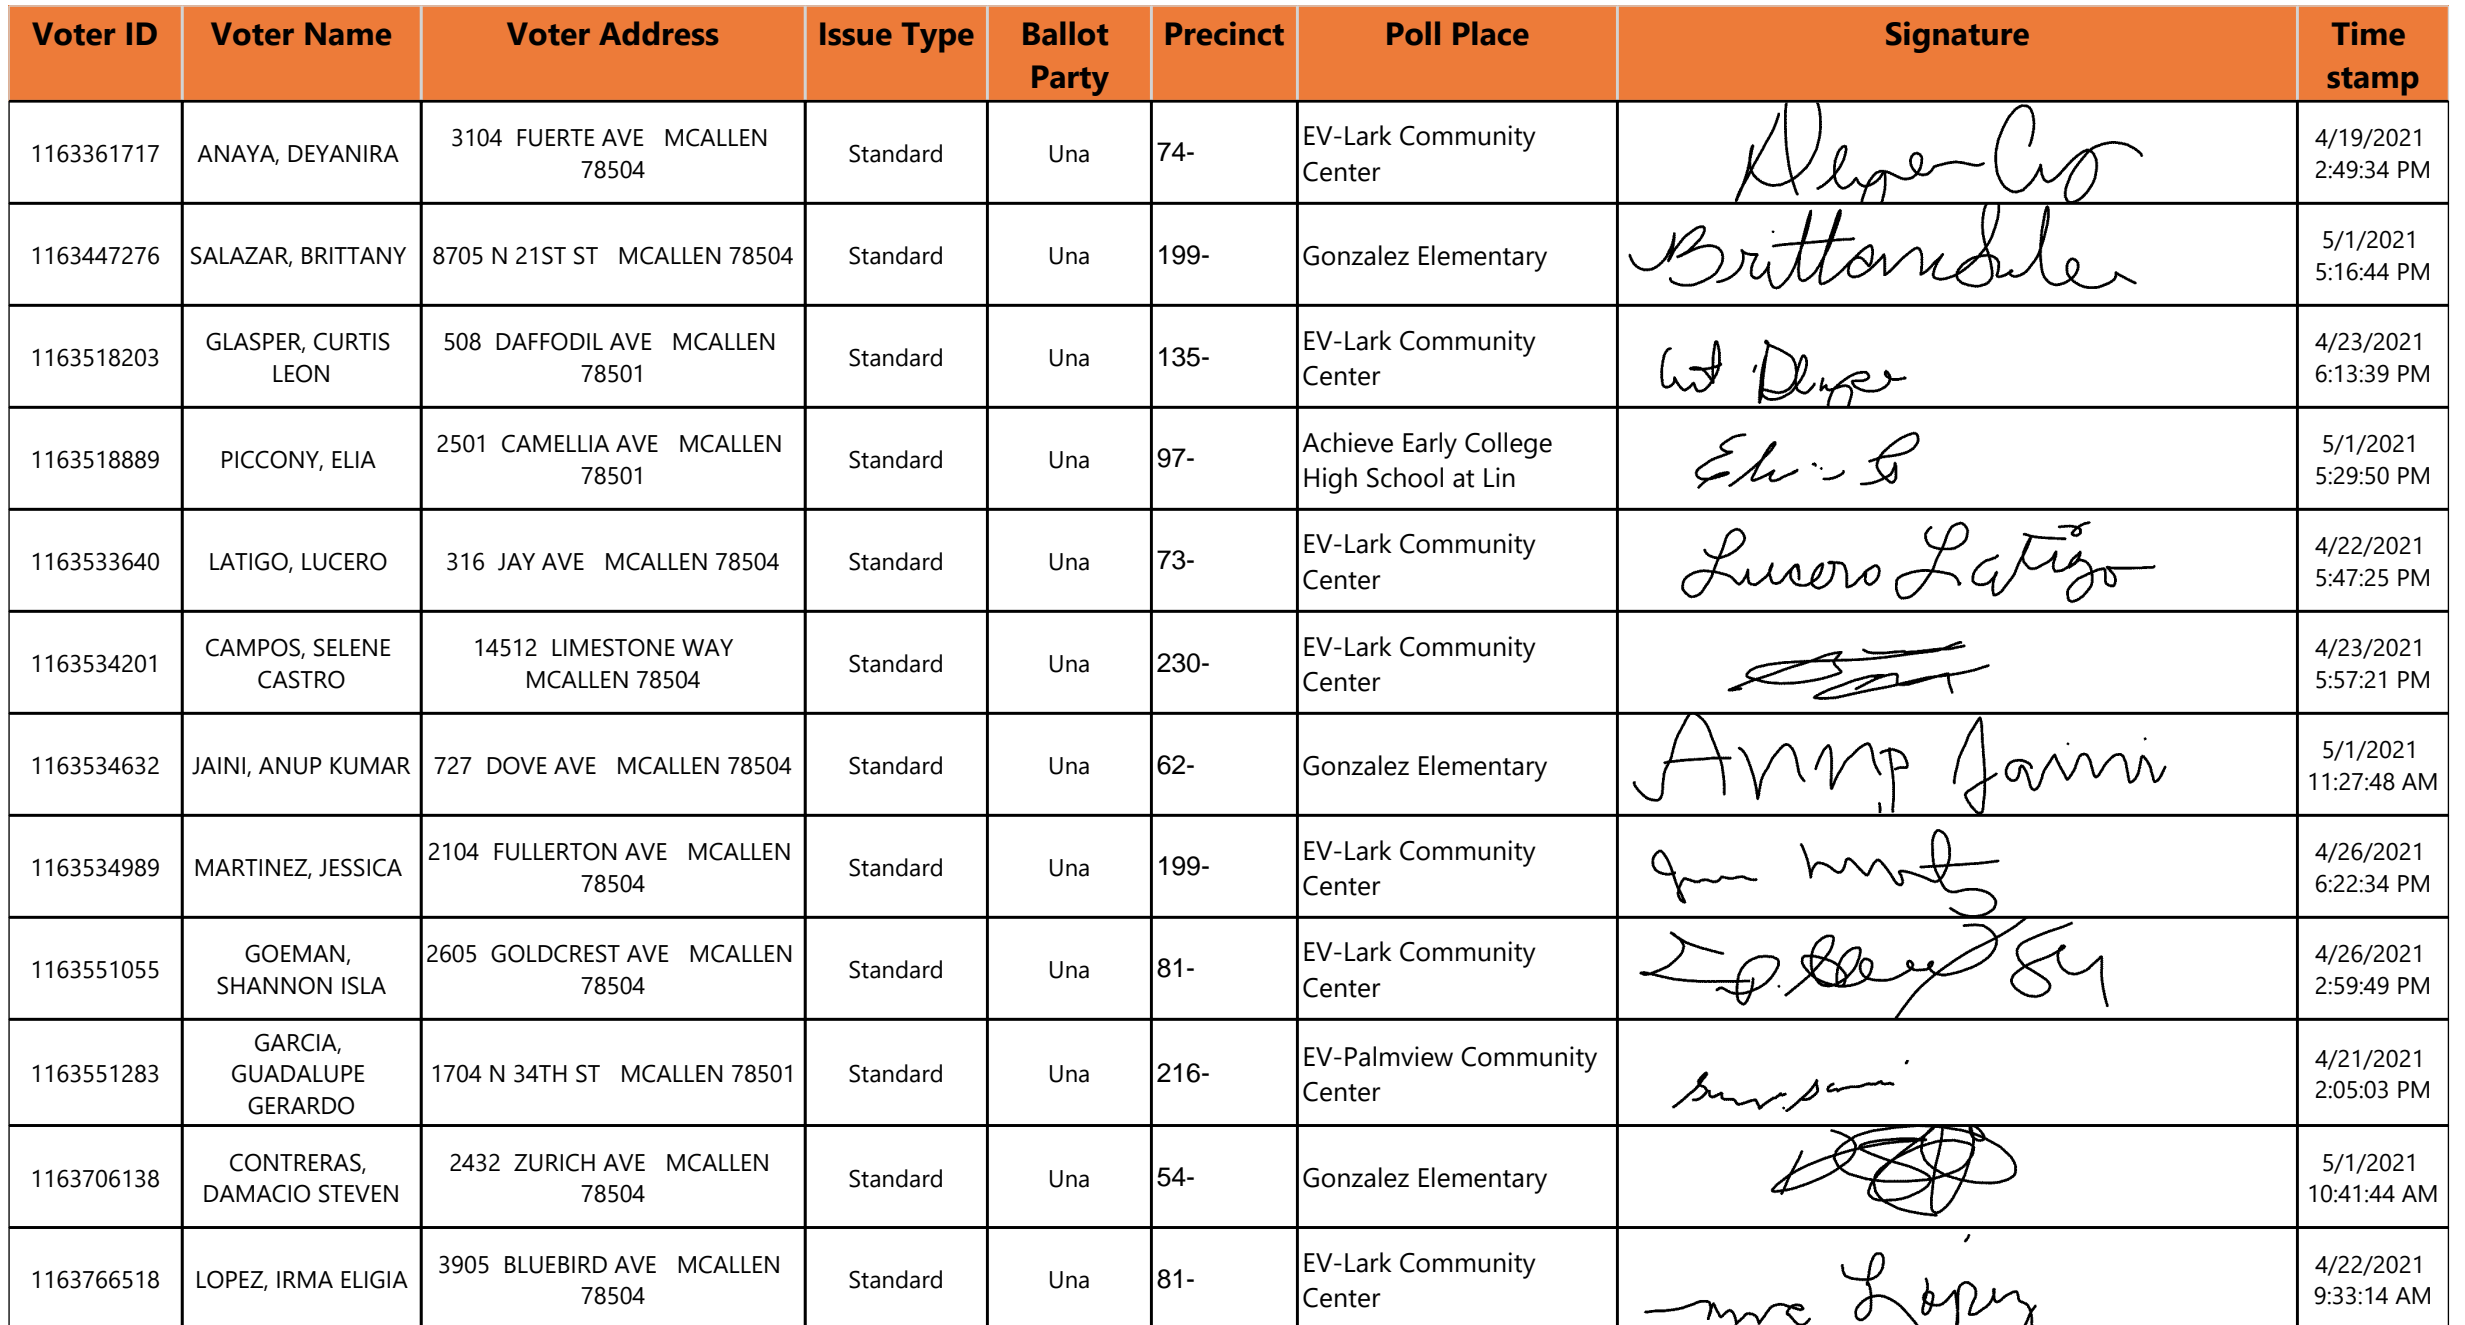 Voter ID Voter Name Voter Address Issue Type Ballot Party Precinct Poll Place Signature Time stamp
1163361717 ANAYA, DEYANIRA 3104 FUERTE AVE MCALLEN 78504 Standard Una 74- EV-Lark Community Center 4/19/2021 2:49:34 PM
1163447276 SALAZAR, BRITTANY 8705 N 21ST ST MCALLEN 78504 Standard Una 199- Gonzalez Elementary Brittany 5/1/2021 5:16:44 PM
1163518203 GLASPER, CURTIS LEON 508 DAFFODIL AVE MCALLEN 78501 Standard Una 135- EV-Lark Community Center 4/23/2021 6:13:39 PM
1163518889 PICCONY, ELIA 2501 CAMELLIA AVE MCALLEN 78501 Standard Una 97- Achieve Early College High School at Lin 5/1/2021 5:29:50 PM
1163533640 LATIGO, LUCERO 316 JAY AVE MCALLEN 78504 Standard Una 73- EV-Lark Community Center Lucero Latigo 4/22/2021 5:47:25 PM
1163534201 CAMPOS, SELENE CASTRO 14512 LIMESTONE WAY MCALLEN 78504 Standard Una 230- EV-Lark Community Center 4/23/2021 5:57:21 PM
1163534632 JAINI, ANUP KUMAR 727 DOVE AVE MCALLEN 78504 Standard Una 62- Gonzalez Elementary Anup Jaini 5/1/2021 11:27:48 AM
1163534989 MARTINEZ, JESSICA 2104 FULLERTON AVE MCALLEN 78504 Standard Una 199- EV-Lark Community Center 4/26/2021 6:22:34 PM
1163551055 GOEMAN, SHANNON ISLA 2605 GOLDCREST AVE MCALLEN 78504 Standard Una 81- EV-Lark Community Center 4/26/2021 2:59:49 PM
1163551283 GARCIA, GUADALUPE GERARDO 1704 N 34TH ST MCALLEN 78501 Standard Una 216- EV-Palmview Community Center 4/21/2021 2:05:03 PM
1163706138 CONTRERAS, DAMACIO STEVEN 2432 ZURICH AVE MCALLEN 78504 Standard Una 54- Gonzalez Elementary 5/1/2021 10:41:44 AM
1163766518 LOPEZ, IRMA ELIGIA 3905 BLUEBIRD AVE MCALLEN 78504 Standard Una 81- EV-Lark Community Center Lopez 4/22/2021 9:33:14 AM